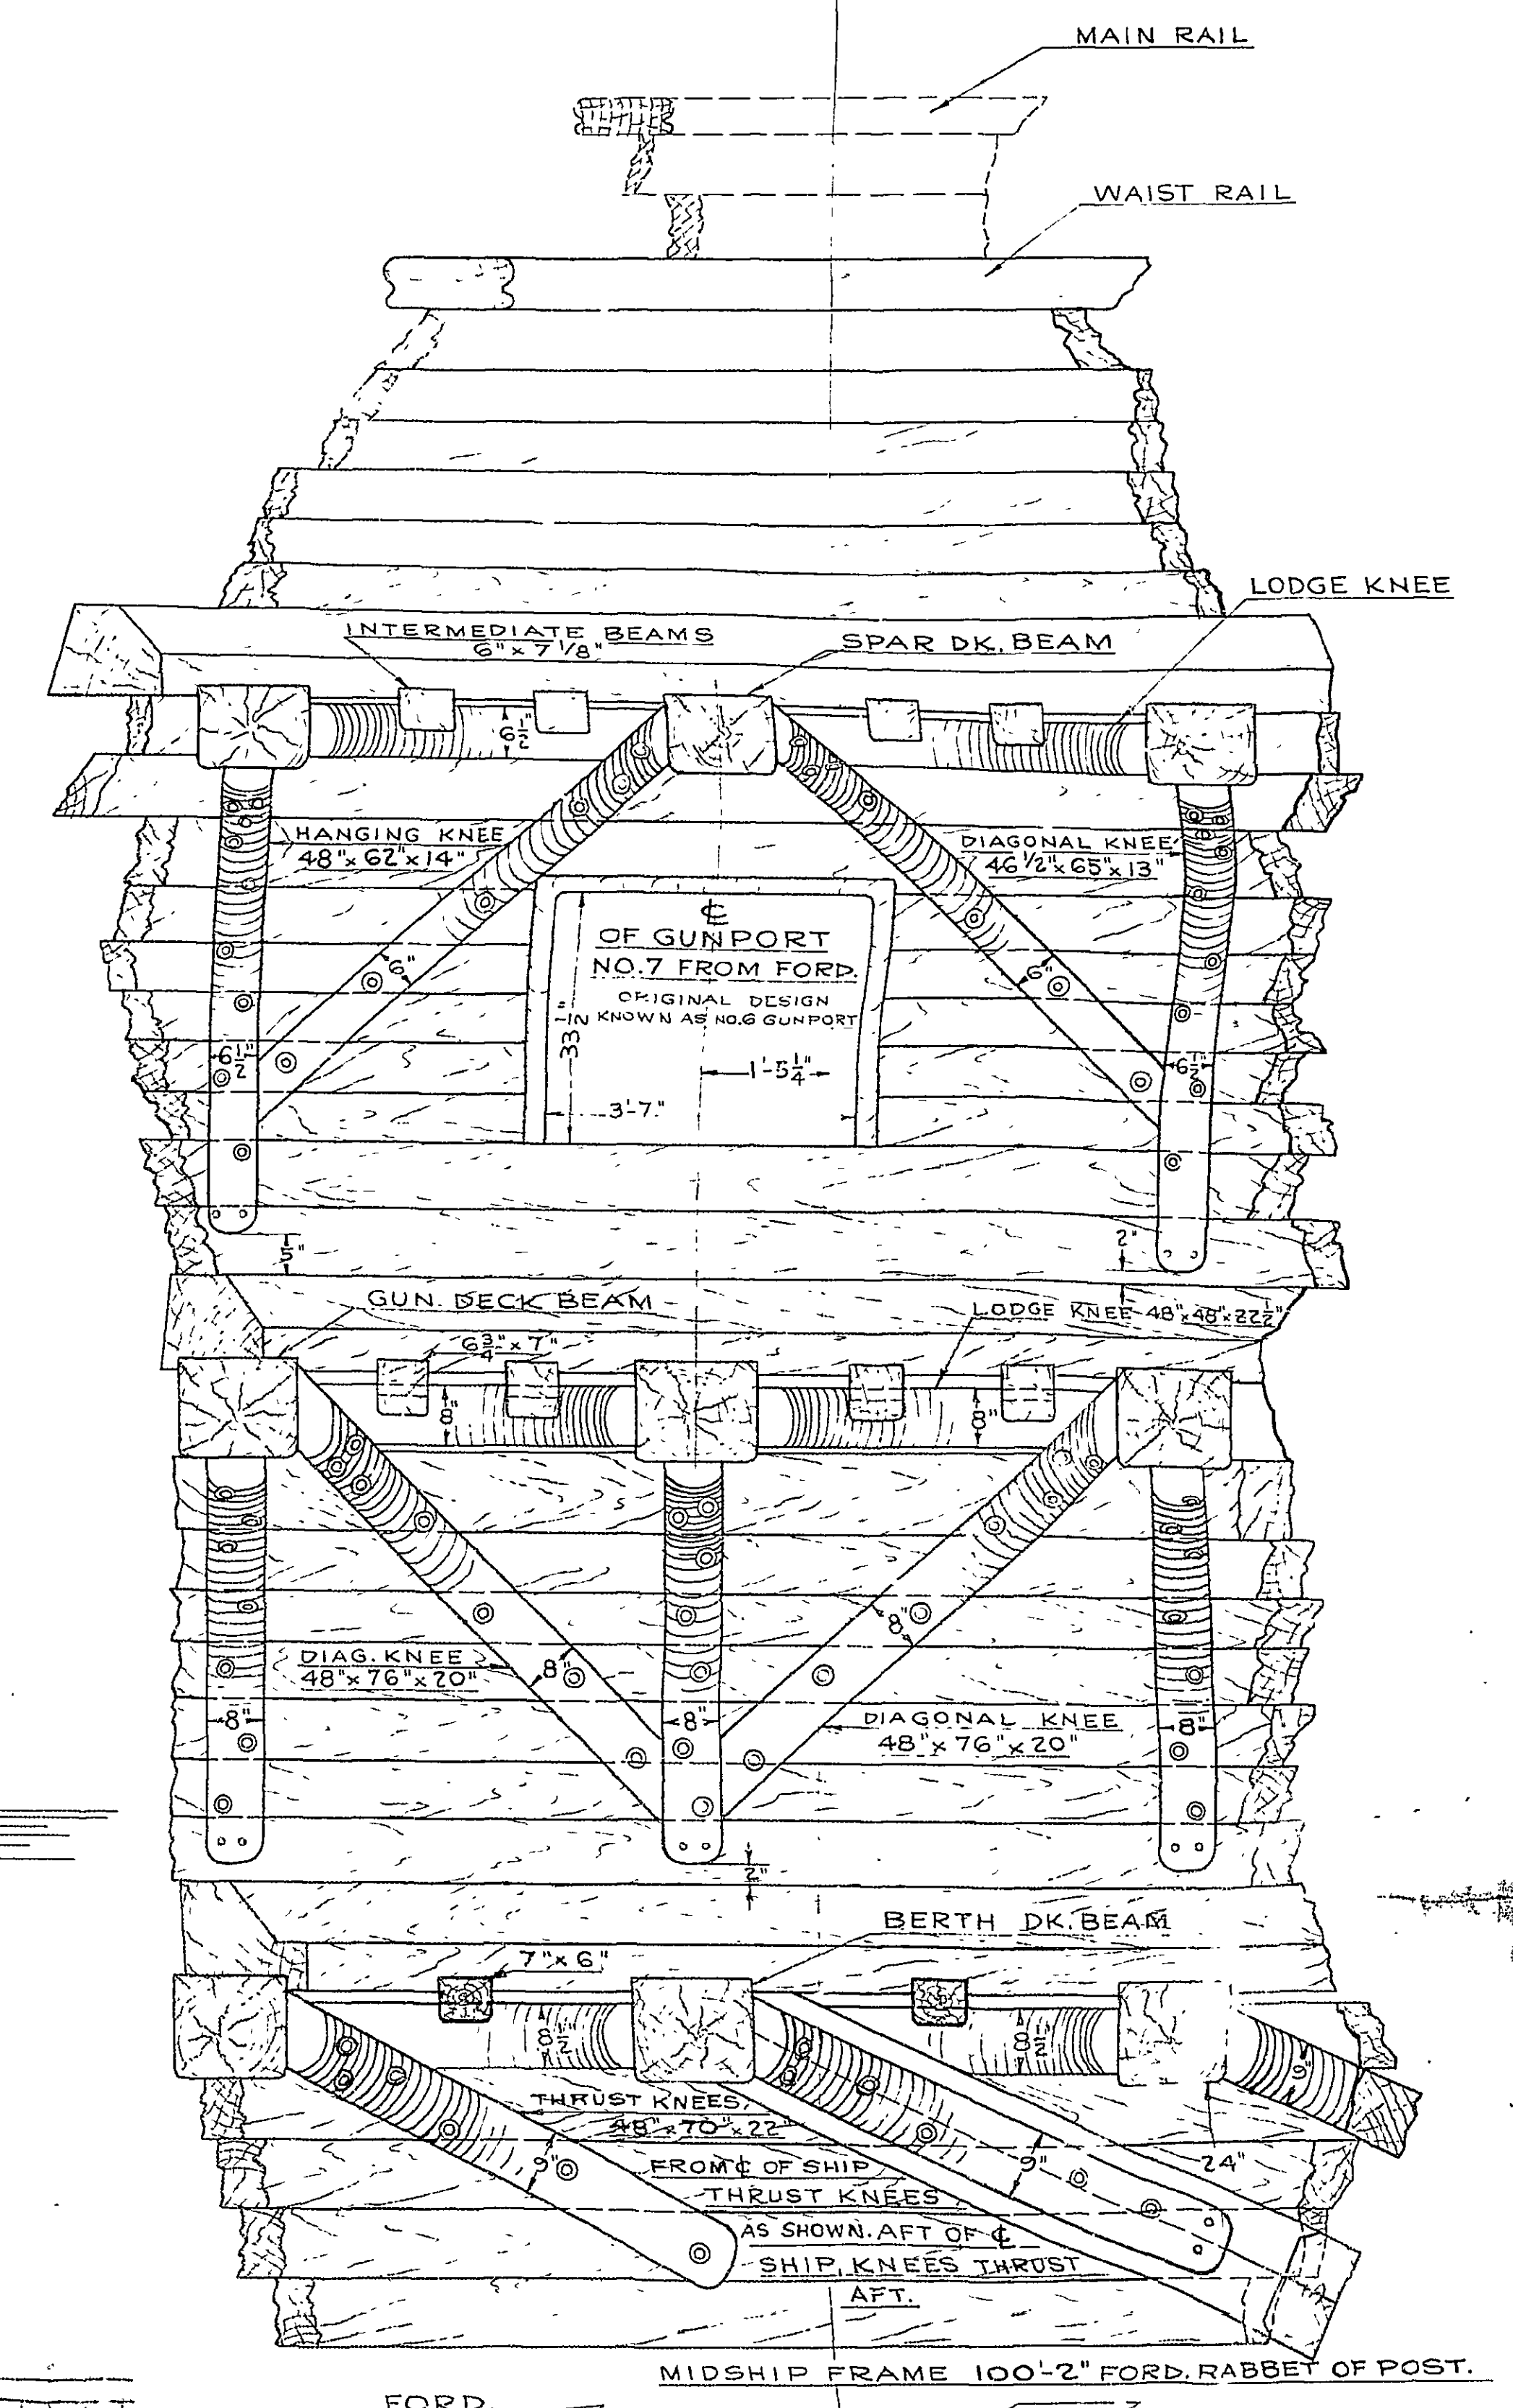 MAIN RAIL
WAIST RAIL
LODGE KNEE
INTERMEDIATE BEAMS
6" x 7 1/8"
SPAR DK. BEAM
6 1/2"
HANGING KNEE
48" x 62" x 14"
DIAGONAL KNEE
46 1/2" x 65" x 13"
℄
OF GUNPORT
NO.7 FROM FORD.
ORIGINAL DESIGN
KNOWN AS NO.6 GUNPORT
6"
6"
33 1/2"
6 1/2"
1'-5 1/4"
6 1/2"
3'-7"
5"
2"
GUN DECK BEAM
LODGE KNEE 48" x 48" x 22 1/2"
6 3/4" x 7"
8"
8"
8"
DIAG. KNEE
48" x 76" x 20"
8"
8"
8"
DIAGONAL KNEE
48" x 76" x 20"
8"
2"
BERTH DK. BEAM
7" x 6"
8 1/2"
8 1/2"
9"
THRUST KNEES
48" x 70" x 22"
9"
9"
24"
FROM ℄ OF SHIP
THRUST KNEES
AS SHOWN. AFT OF ℄
SHIP, KNEES THRUST
AFT.
MIDSHIP FRAME 100'-2" FORD. RABBET OF POST.
FORD.